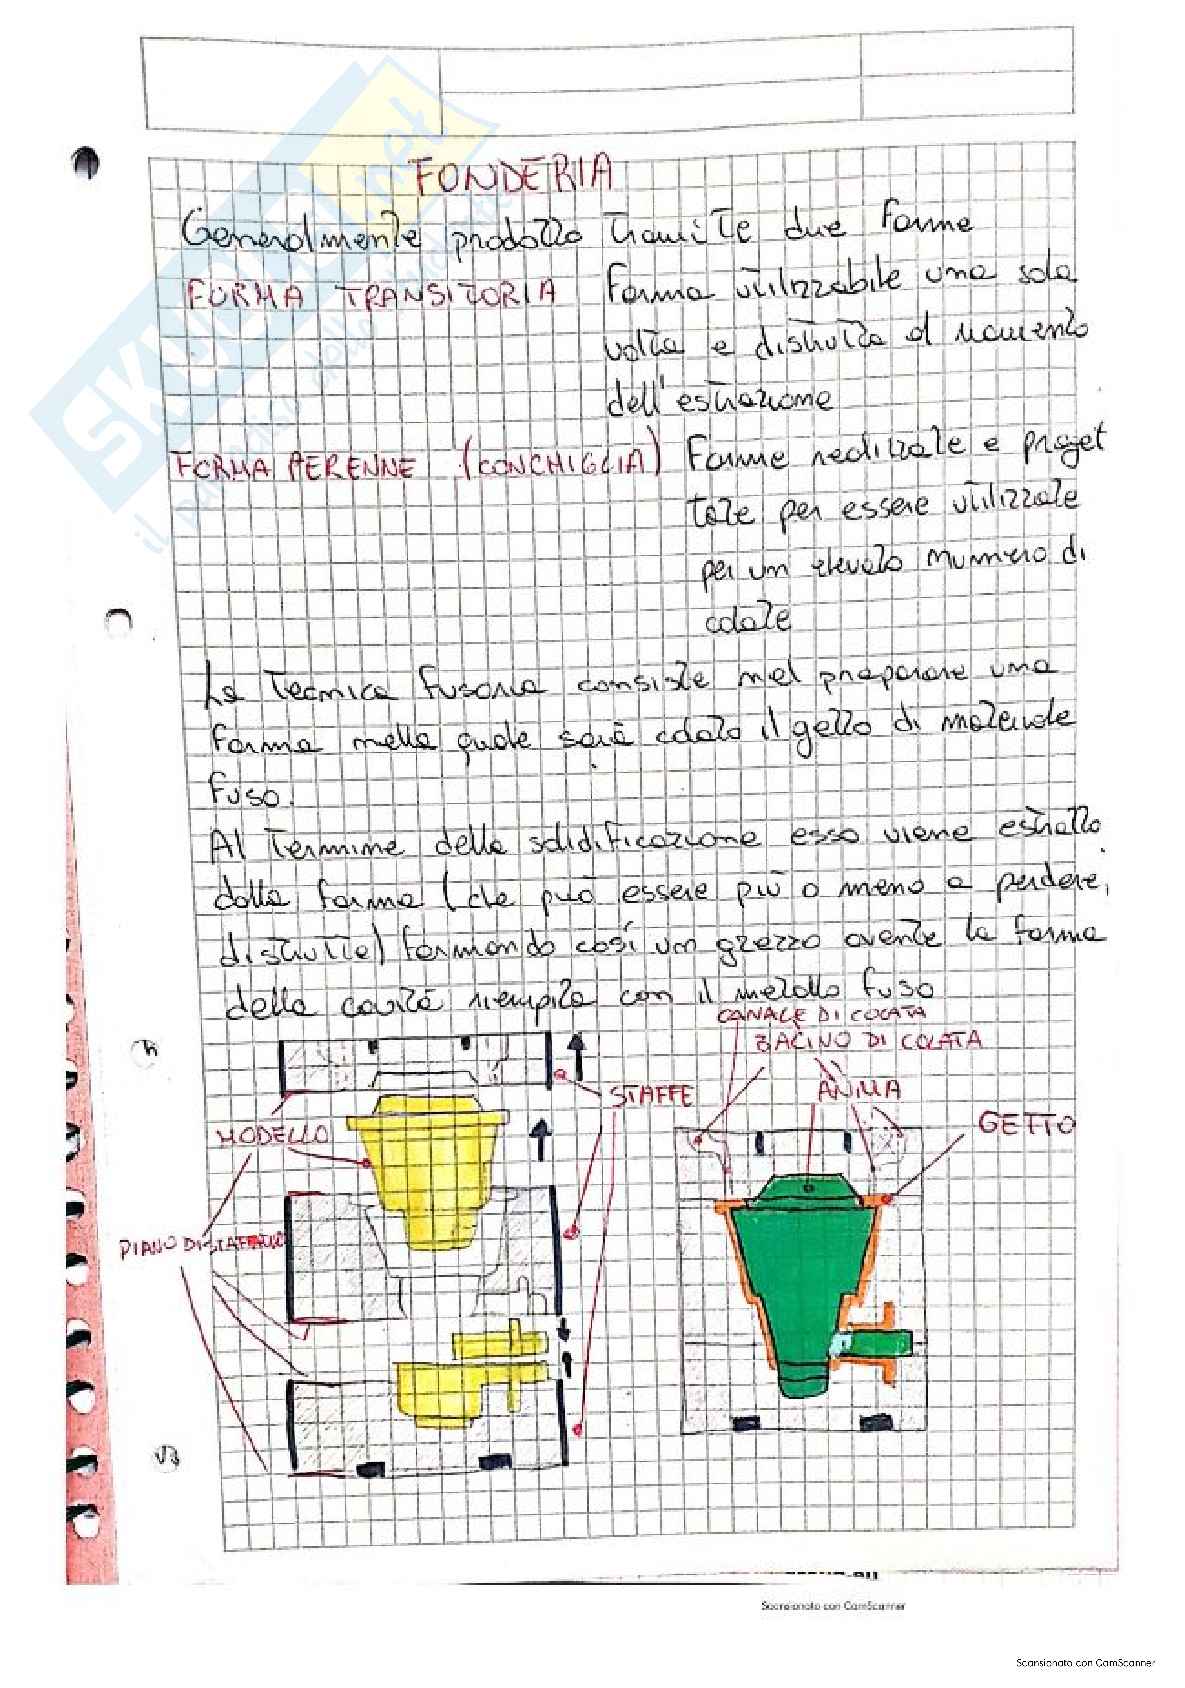 FONDERIA
Generalmente prodotto tramite due forme
FORMA TRANSITORIA Forma utilizzabile una sola
volta e distrutta al momento
dell'estrazione
FORMA PERENNE (CONCHIGLIA) Forme realizzate e proget
tate per essere utilizzate
per un elevato nummero di
colate
La tecnica fusoria consiste nel preparare una
forma nella quale sarà colato il getto di materiale
fuso.
Al termine della solidificazione esso viene estratto
dalla forma (che può essere più o meno a perdere,
distrutte) formando così un grezzo avente la forma
della cavità riempita con il metallo fuso
CANALE DI COLATA
BACINO DI COLATA
STAFFE
ANIMA
GETTO
MODELLO
PIANO DI
SKUOLA.net
il paradiso dello studente
Scansionato con CamScanner
Scansionato con CamScanner